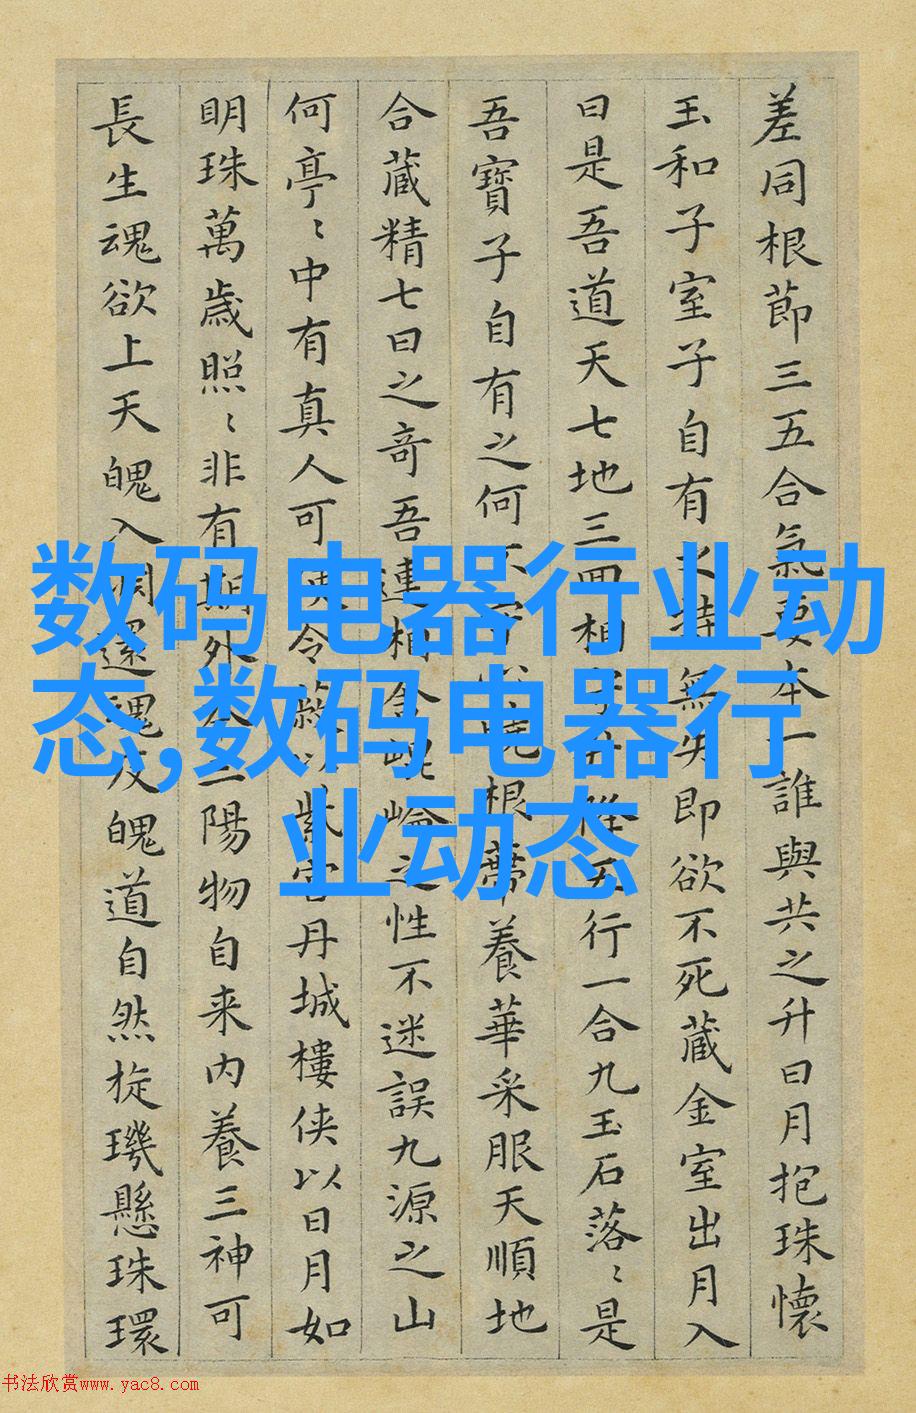 差同根節三五合氣要本一誰與共之升日月抱珠懷
玉和子室子自有之持無失即欲不死藏金室出月入
日是吾道天七地三四相五行一合九玉石落〻是
吾寶子自有之何不根蒂養華采服天順地
合藏精七日之奇吾連相合崐崘之性不迷誤九源之山
何亭〻中有真人可使令蔽以紫宮丹城樓侠以日月如
明珠萬歳照〻非有期外本三陽物自来内養三神可
長生魂欲上天魄入淵還魂反魄道自然旋璣懸珠環
数码电器行业动
态,数码电器行
业动态
书法欣赏www.yac8.com